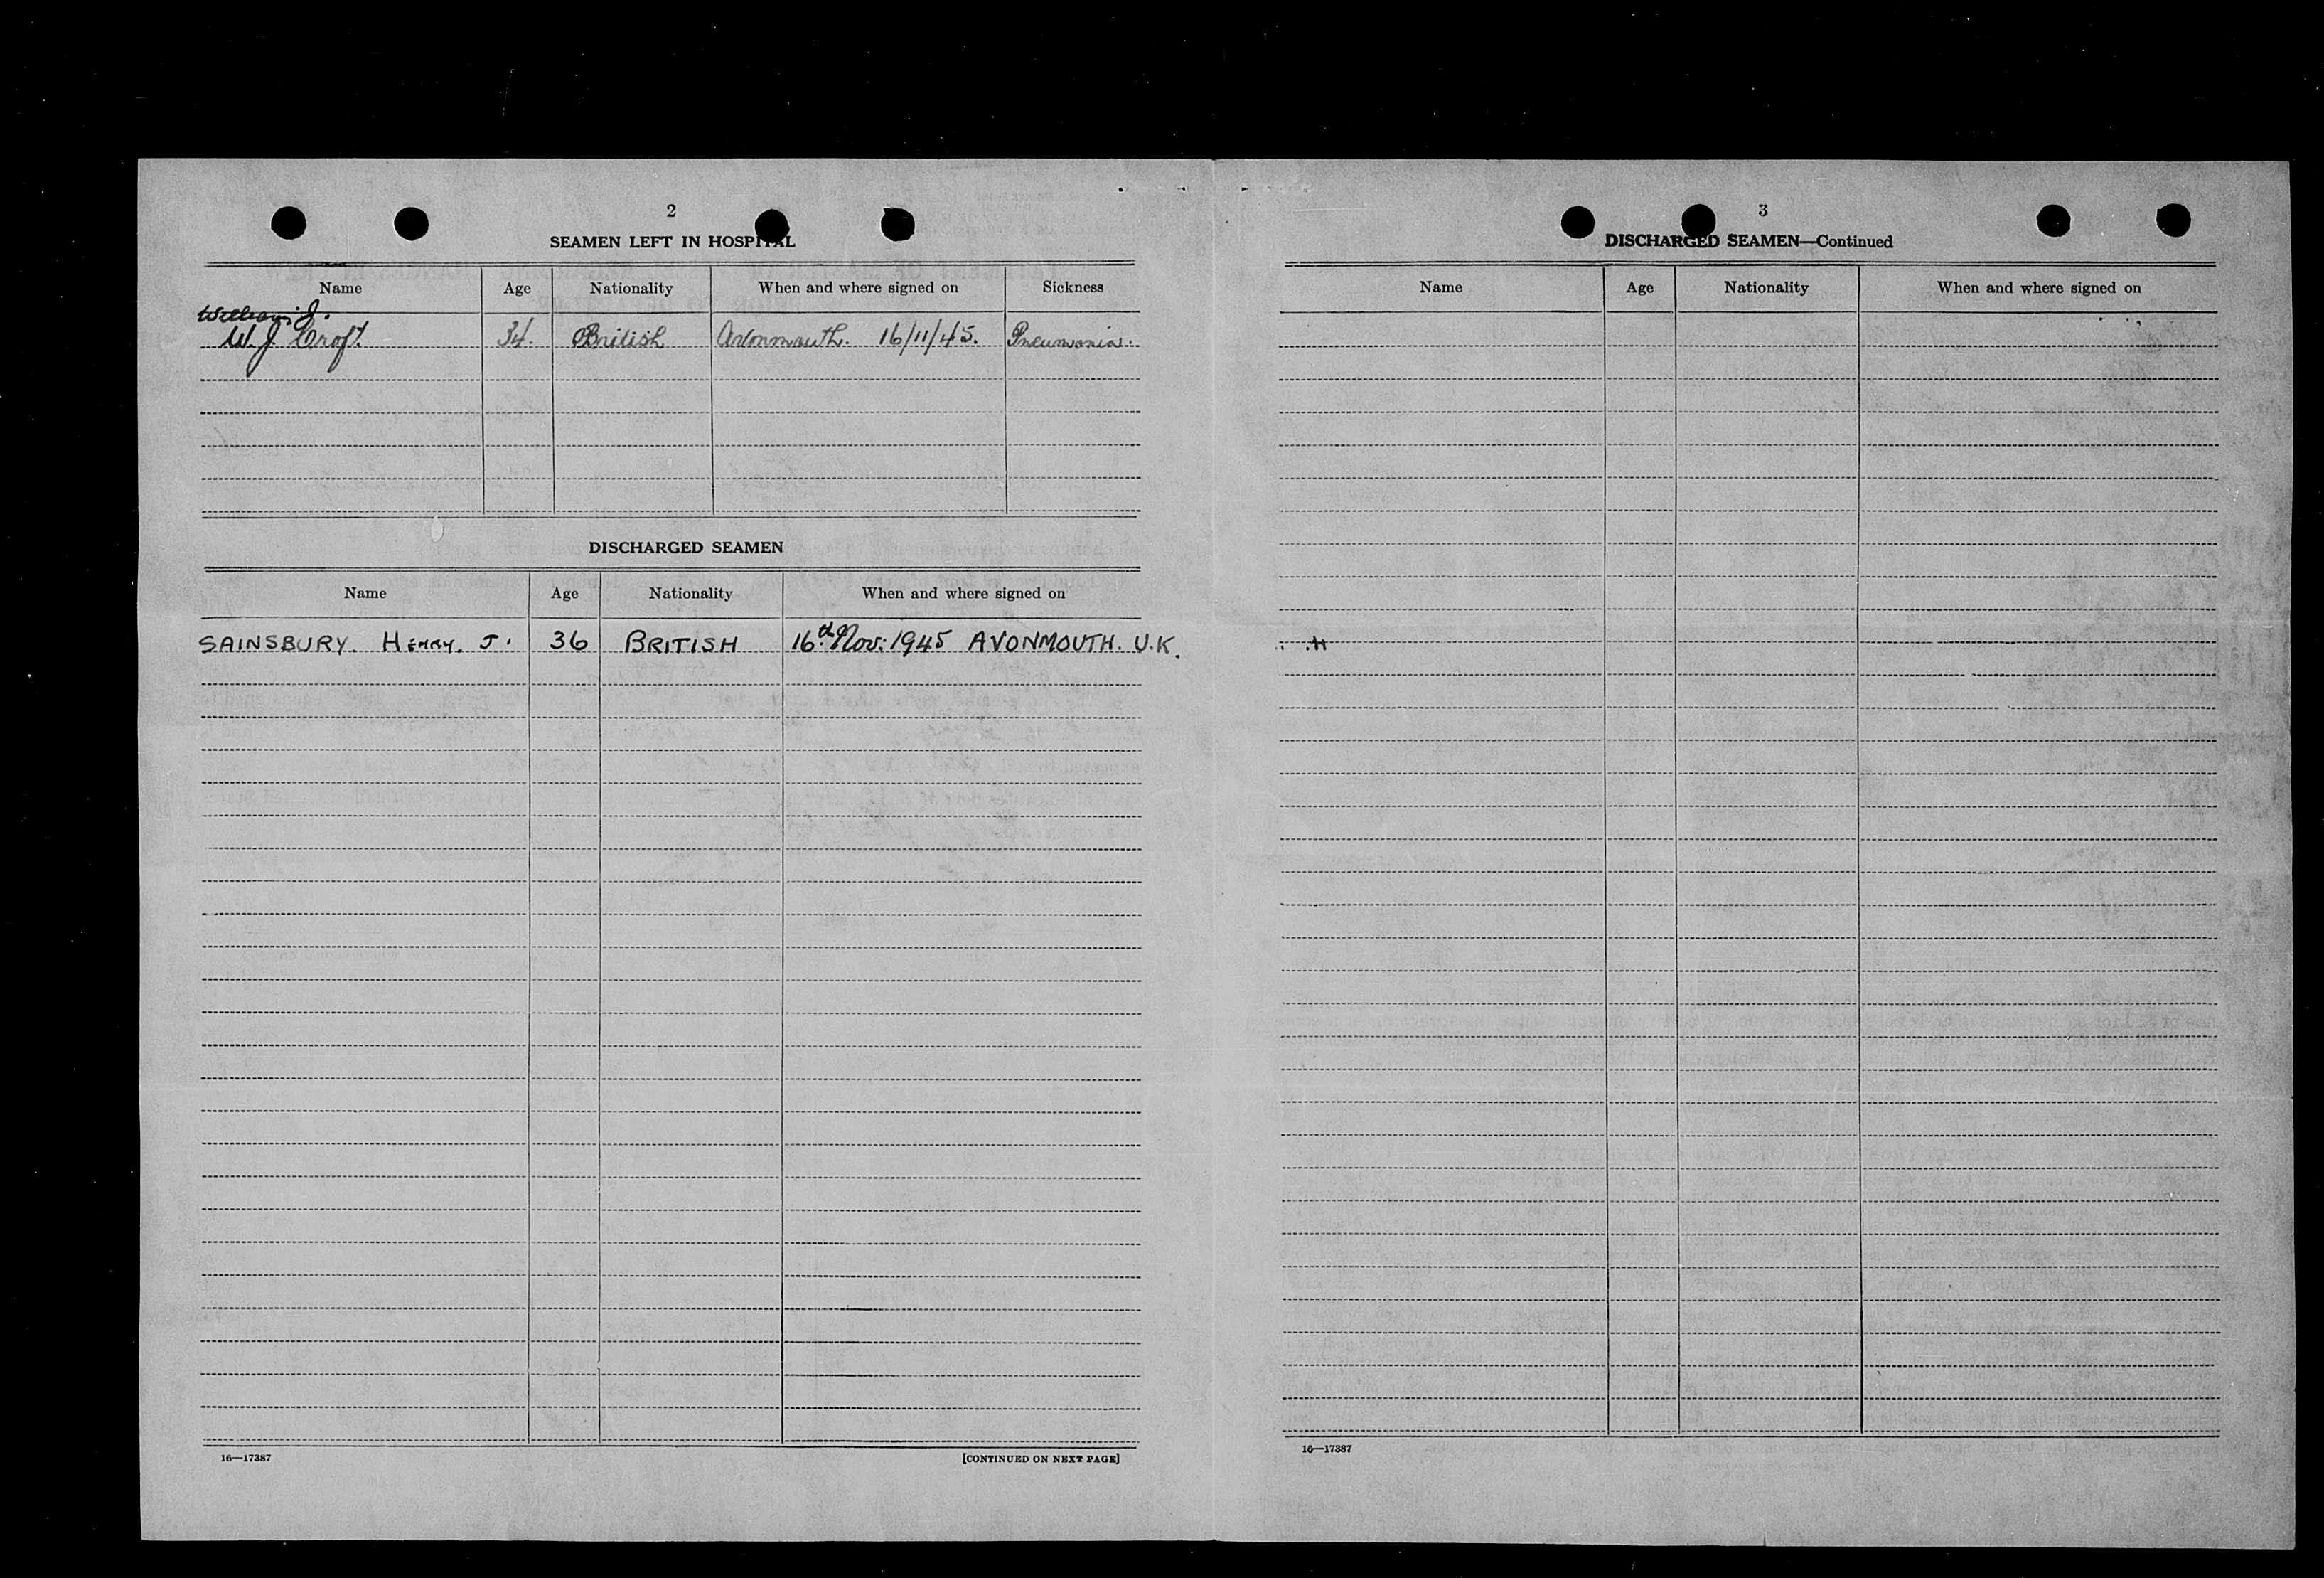 2
SEAMEN LEFT IN HOSPITAL
Name Age Nationality When and where signed on Sickness
William J.
W. J. Croft. 34. British Avonmouth. 16/11/45. Pneumonia.
DISCHARGED SEAMEN
Name Age Nationality When and where signed on
SAINSBURY. HENRY. J. 36 BRITISH 16th Nov: 1945 AVONMOUTH. U.K.
16—17387 [CONTINUED ON NEXT PAGE]
3
DISCHARGED SEAMEN—Continued
Name Age Nationality When and where signed on
16—17387